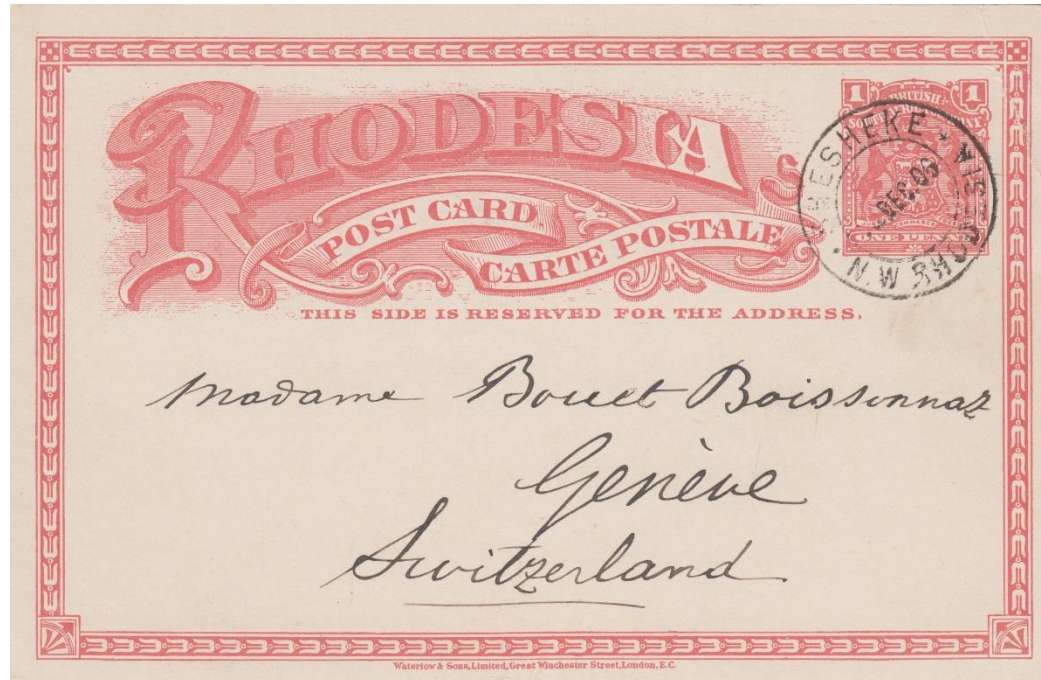 RHODESIA
POST CARD
CARTE POSTALE
THIS SIDE IS RESERVED FOR THE ADDRESS.
1 BRITISH 1
SOUTH AFRICA COMPANY
ONE PENNY
SESHEKE
DEC. 06
N.W. RHODESIA
Madame Bouet Boissonnaz
Genève
Switzerland
Waterlow & Sons, Limited, Great Winchester Street, London, E.C.